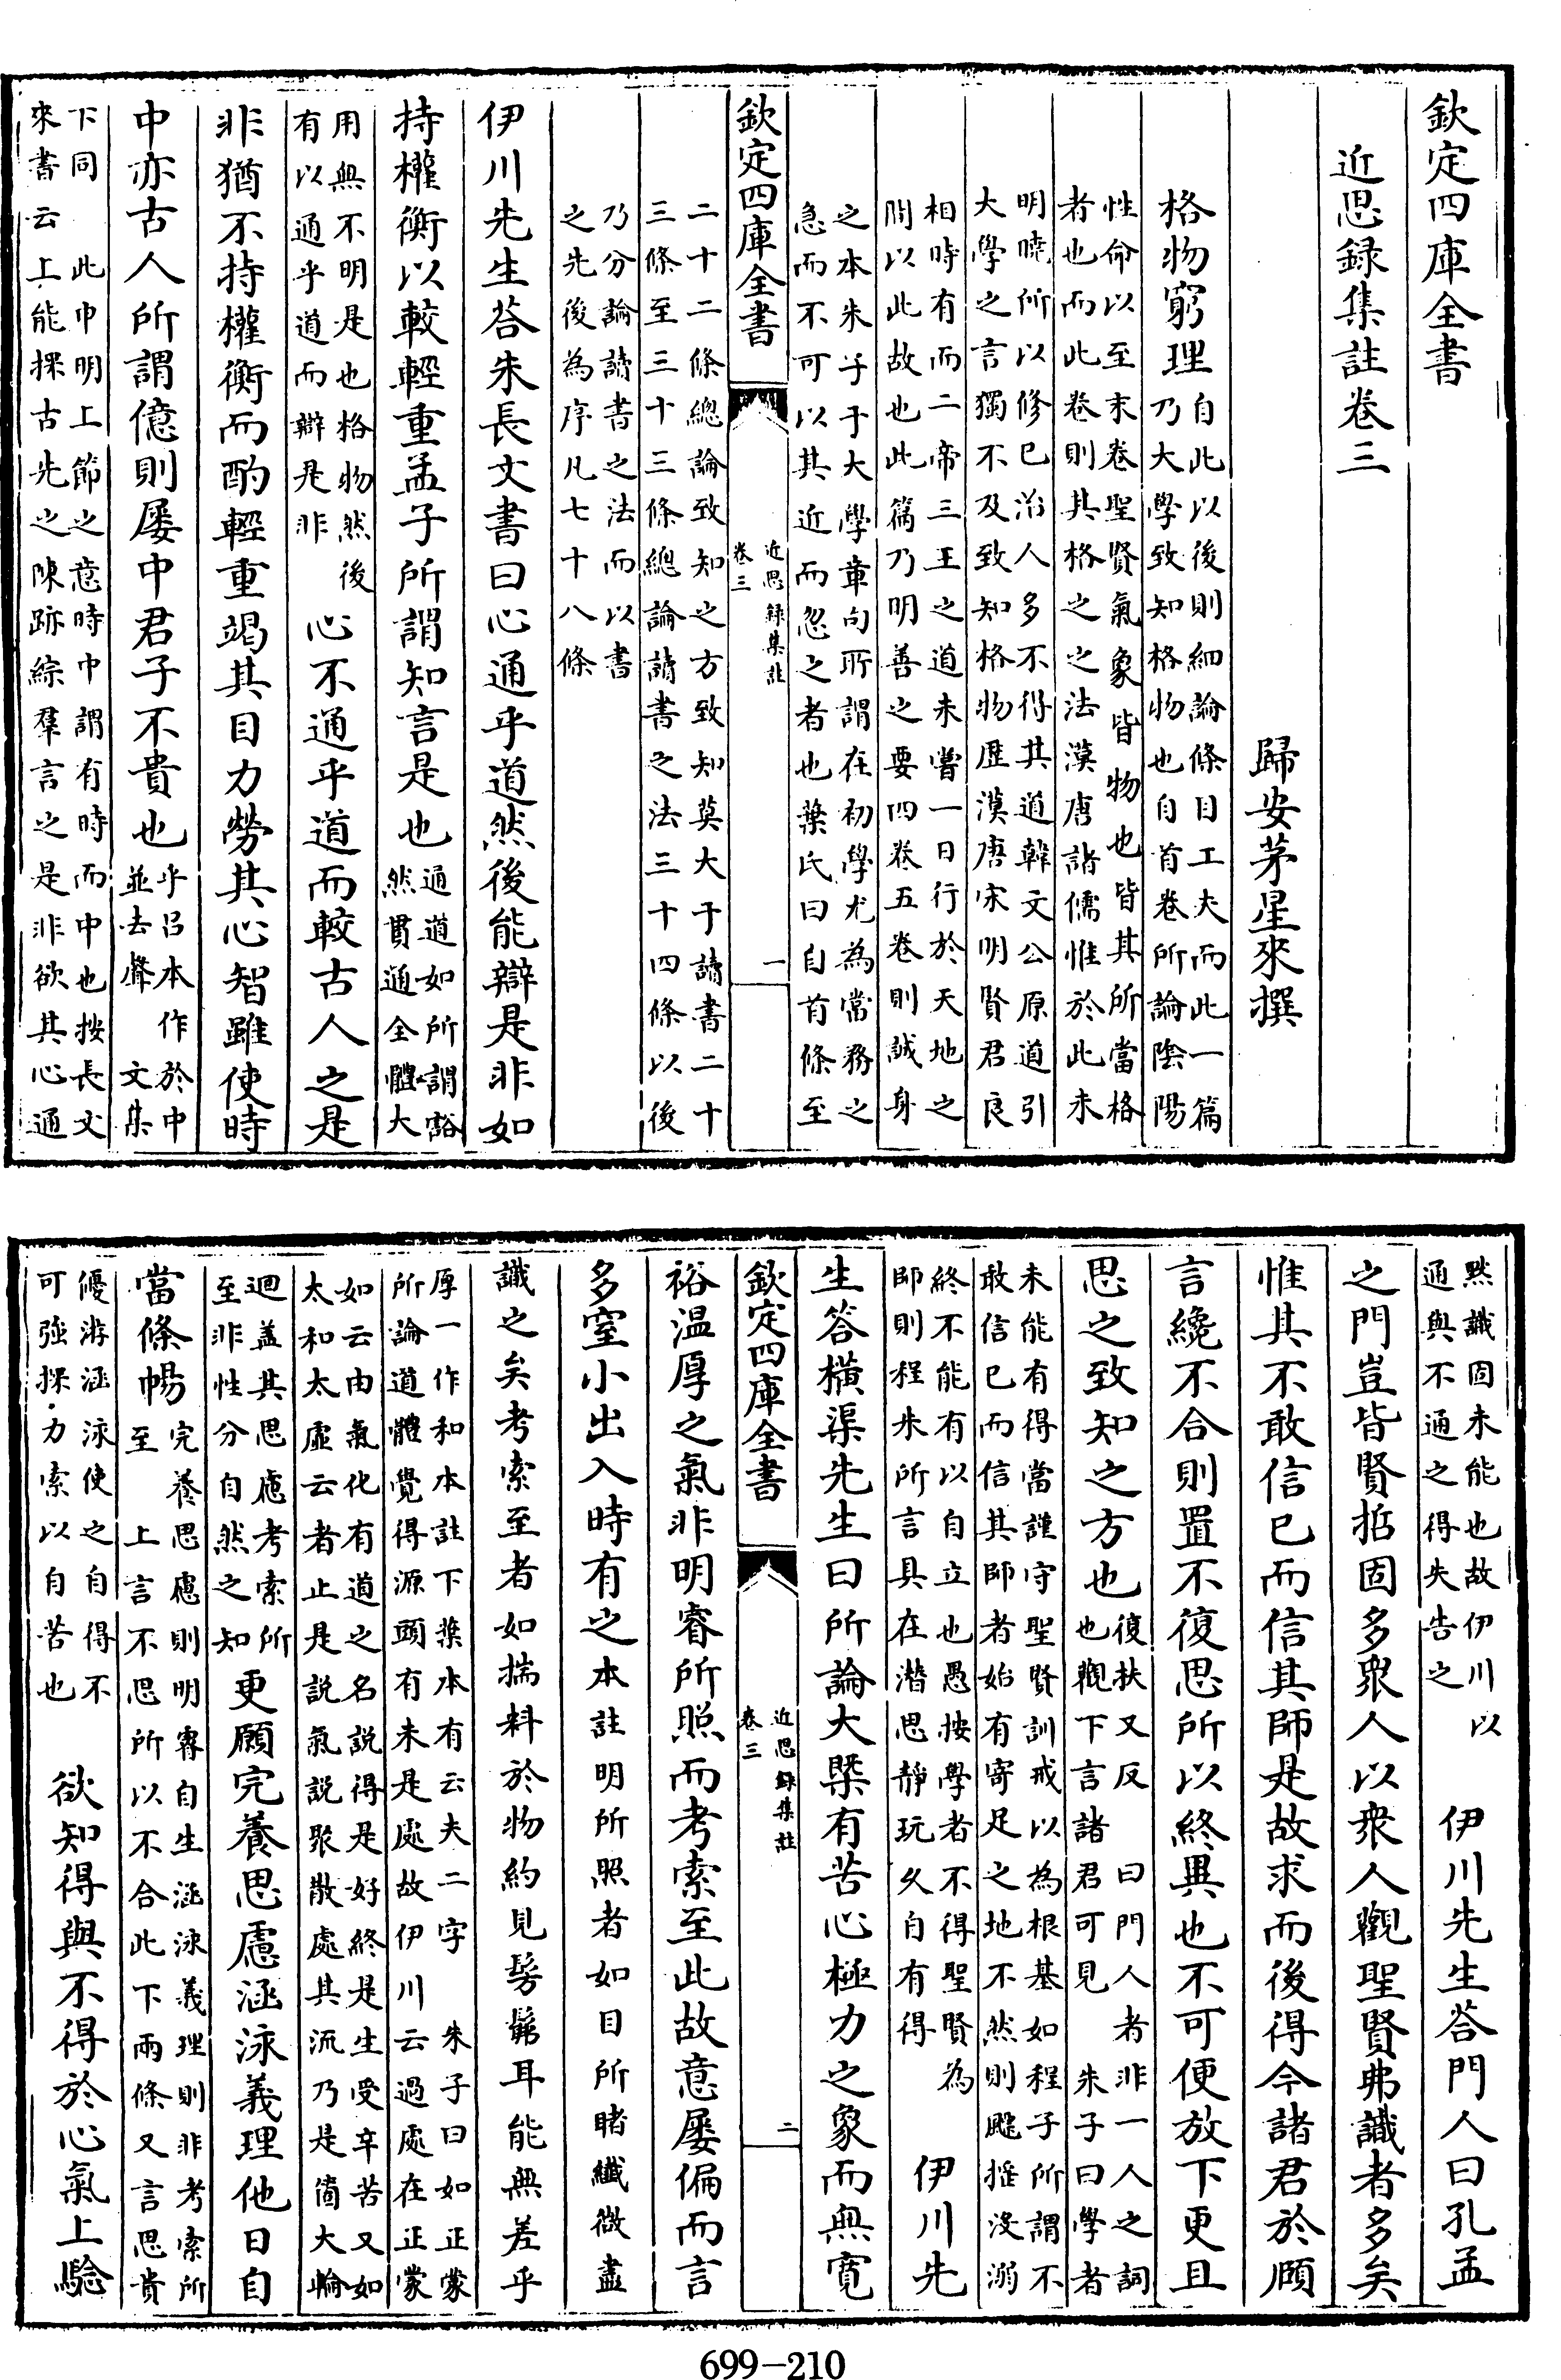 欽定四庫全書
近思録集註卷三
歸安茅星來撰
格物窮理自此以後則細論條目工夫而此一篇
乃大學致知格物也自首卷所論陰陽
性命以至末卷聖賢氣象皆物也皆其所當格
者也而此卷則其格之之法漢唐諸儒惟於此未
明曉所以修已治人多不得其道韓文公原道引
大學之言獨不及致知格物歷漢唐宋明賢君良
相時有而二帝三王之道未嘗一日行於天地之
間以此故也此篇乃明善之要四卷五卷則誠身
之本朱子于大學章句所謂在初學尤為當務之
急而不可以其近而忽之者也葉氏曰自首條至
欽定四庫全書
近思録集註
卷三
一
二十二條總論致知之方致知莫大于讀書二十
三條至三十三條總論讀書之法三十四條以後
乃分論讀書之法而以書
之先後為序凡七十八條
伊川先生荅朱長文書曰心通乎道然後能辯是非如
持權衡以較輕重孟子所謂知言是也通道如所謂豁
然貫通全體大
用無不明是也格物然後
有以通乎道而辯是非
心不通乎道而較古人之是
非猶不持權衡而酌輕重竭其目力勞其心智雖使時
中亦古人所謂億則屢中君子不貴也乎吕本作於中
並去聲 文集
下同 此巾明上節之意時中謂有時而中也按長文
來書云上能探古先之陳跡綜羣言之是非欲其心通
黙識固未能也故伊川以
通與不通之得失告之
伊川先生荅門人曰孔孟
之門豈皆賢哲固多衆人以衆人觀聖賢弗識者多矣
惟其不敢信已而信其師是故求而後得今諸君於頤
言纔不合則置不復思所以終異也不可便放下更且
思之致知之方也復扶又反 曰門人者非一人之詞
也觀下言諸君可見 朱子曰學者
未能有得當謹守聖賢訓戒以為根基如程子所謂不
敢信已而信其師者始有寄足之地不然則飃揺沒溺
終不能有以自立也愚按學者不得聖賢為
師則程朱所言具在潜思靜玩久自有得
伊川先
生答横渠先生曰所論大槩有苦心極力之象而無寛
欽定四庫全書
近思録集註
卷三
二
裕温厚之氣非明睿所照而考索至此故意屡偏而言
多窒小出入時有之本註明所照者如目所睹纖微盡
識之矣考索至者如揣料於物約見髣髴耳能無差乎
厚一作和本註下葉本有云夫二字 朱子曰如正蒙
所論道體覺得源頭有未是處故伊川云過處在正蒙
如云由氣化有道之名説得是好終是生受辛苦又如
太和太虚云者止是説氣説聚散處其流乃是箇大輪
迴盖其思慮考索所
至非性分自然之知
更願完養思慮涵泳義理他日自
當條暢完養思慮則明睿自生涵泳義理則非考索所
至 上言不思所以不合此下兩條又言思貴
優游涵泳使之自得不
可強探力索以自苦也
欲知得與不得於心氣上騐
699-210